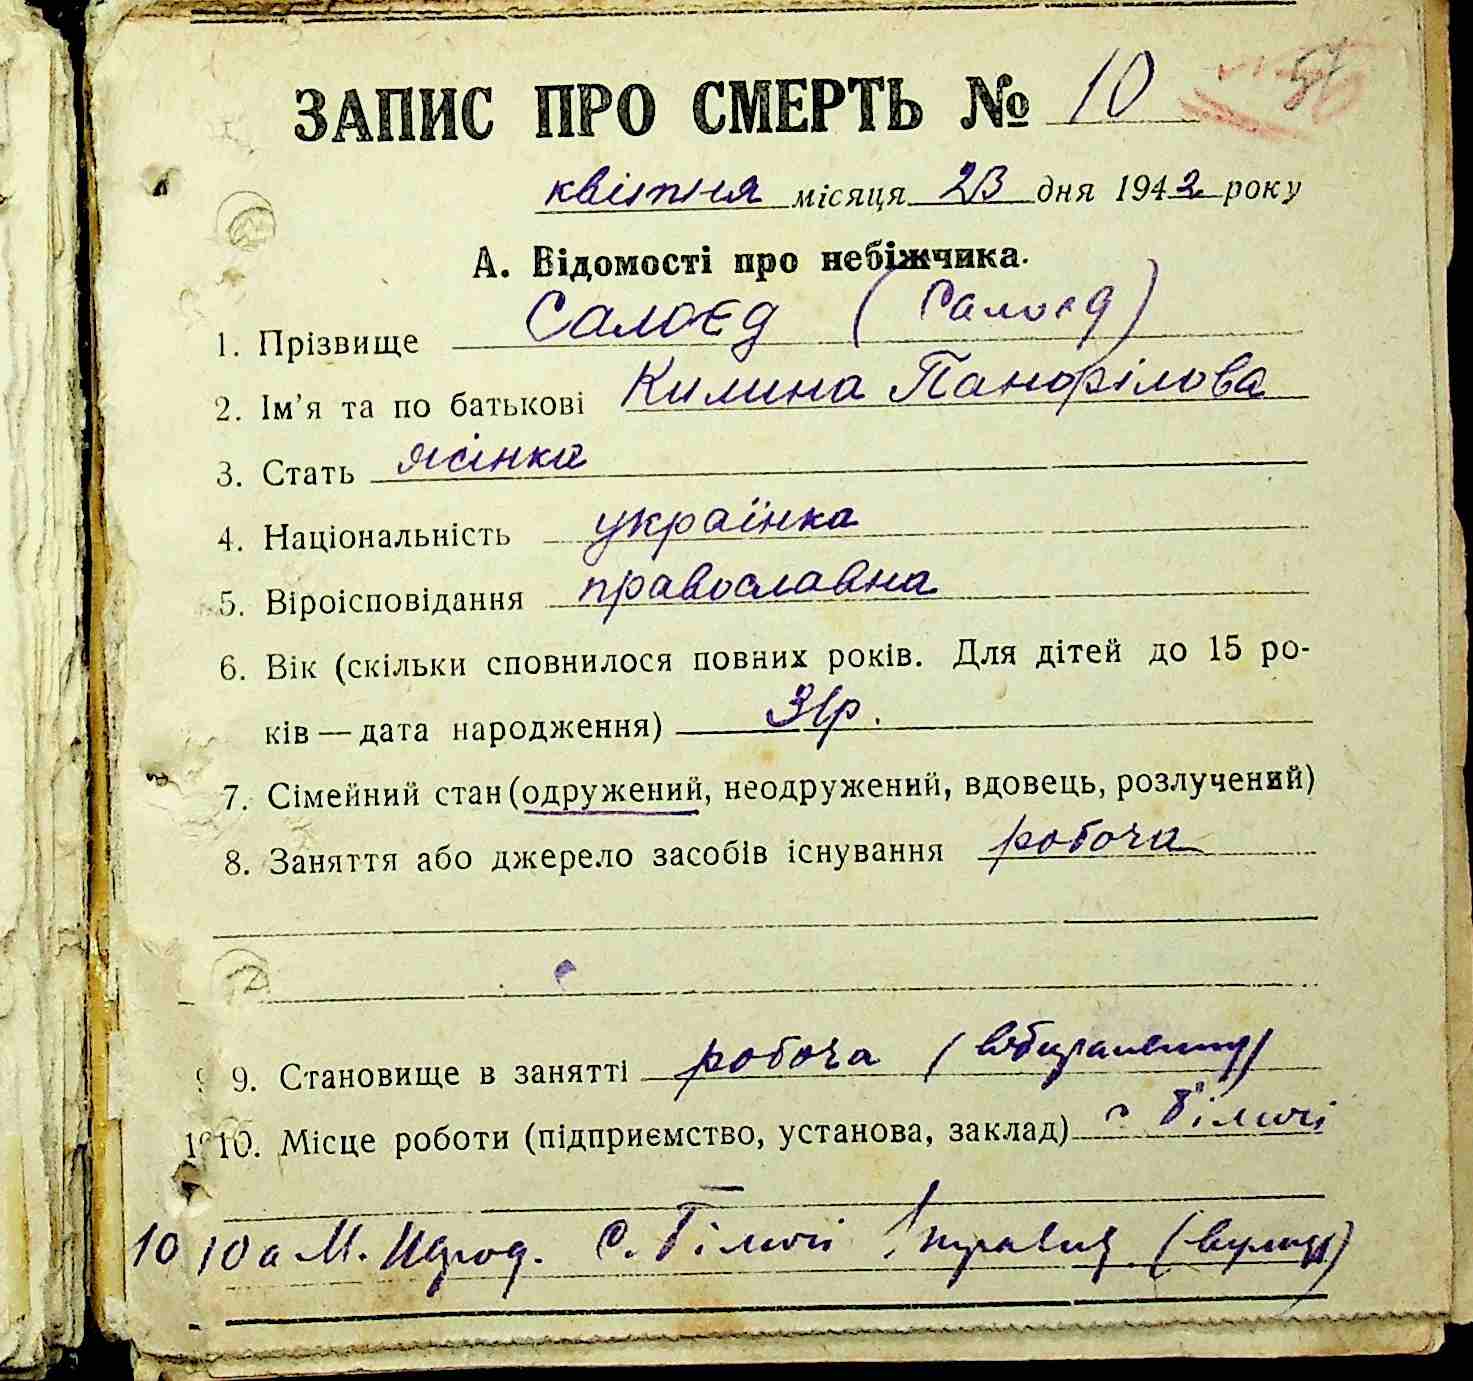 ЗАПИС ПРО СМЕРТЬ № 10
квітня місяця 23 дня 1942 року
А. Відомості про небіжчика.
1. Прізвище Салоєд (Салоєд)
2. Ім'я та по батькові Килина Панфілова
3. Стать жінка
4. Національність українка
5. Віроісповідання православна
6. Вік (скільки сповнилося повних років. Для дітей до 15 ро-
ків — дата народження) 31р.
7. Сімейний стан (одружений, неодружений, вдовець, розлучений)
8. Заняття або джерело засобів існування робоча
9. Становище в занятті робоча
10. Місце роботи (підприємство, установа, заклад) с Біличі
10 10а М. Народ. с. Біличі